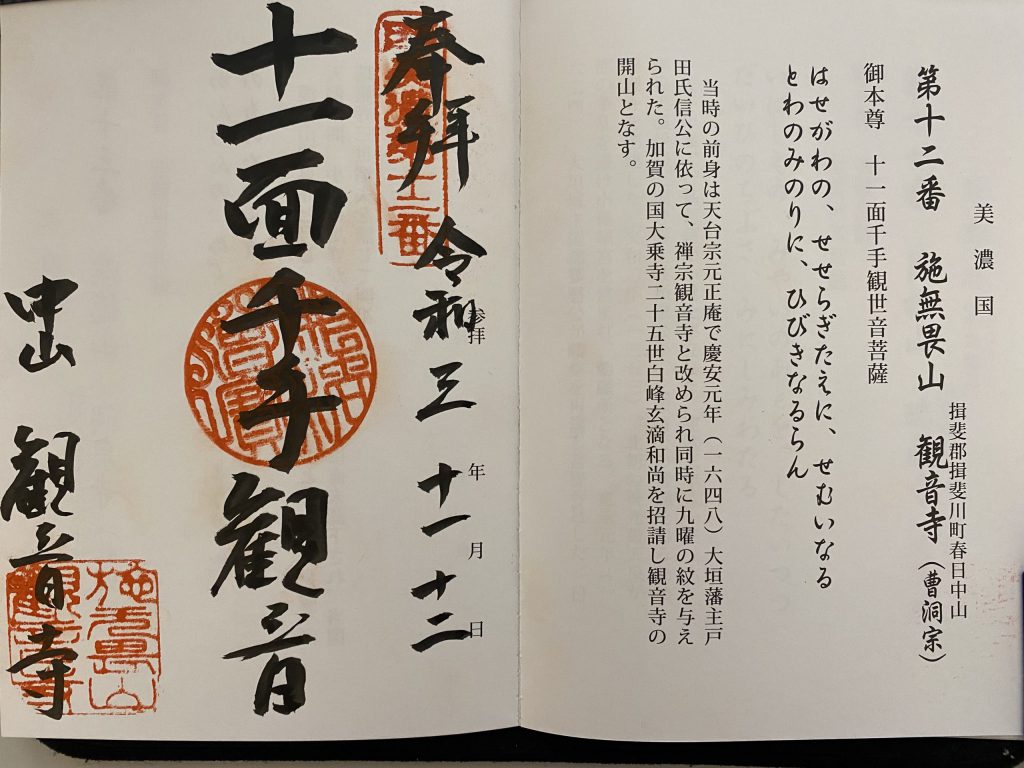 美濃国
揖斐郡揖斐川町春日中山
第十二番 施無畏山 観音寺(曹洞宗)
御本尊 十一面千手観世音菩薩
はせがわの、せせらぎたえに、せむいなる
とわのみのりに、ひびきなるらん
当時の前身は天台宗元正庵で慶安元年(一六四八)大垣藩主戸
田氏信公に依って、禅宗観音寺と改められ同時に九曜の紋を与え
られた。加賀の国大乗寺二十五世白峰玄滴和尚を招請し観音寺の
開山となす。
参拝 年 月 日
奉拝 令和三 十一 十二
十二番
十一面千手観音
中山 観音寺
施無畏山
観音寺